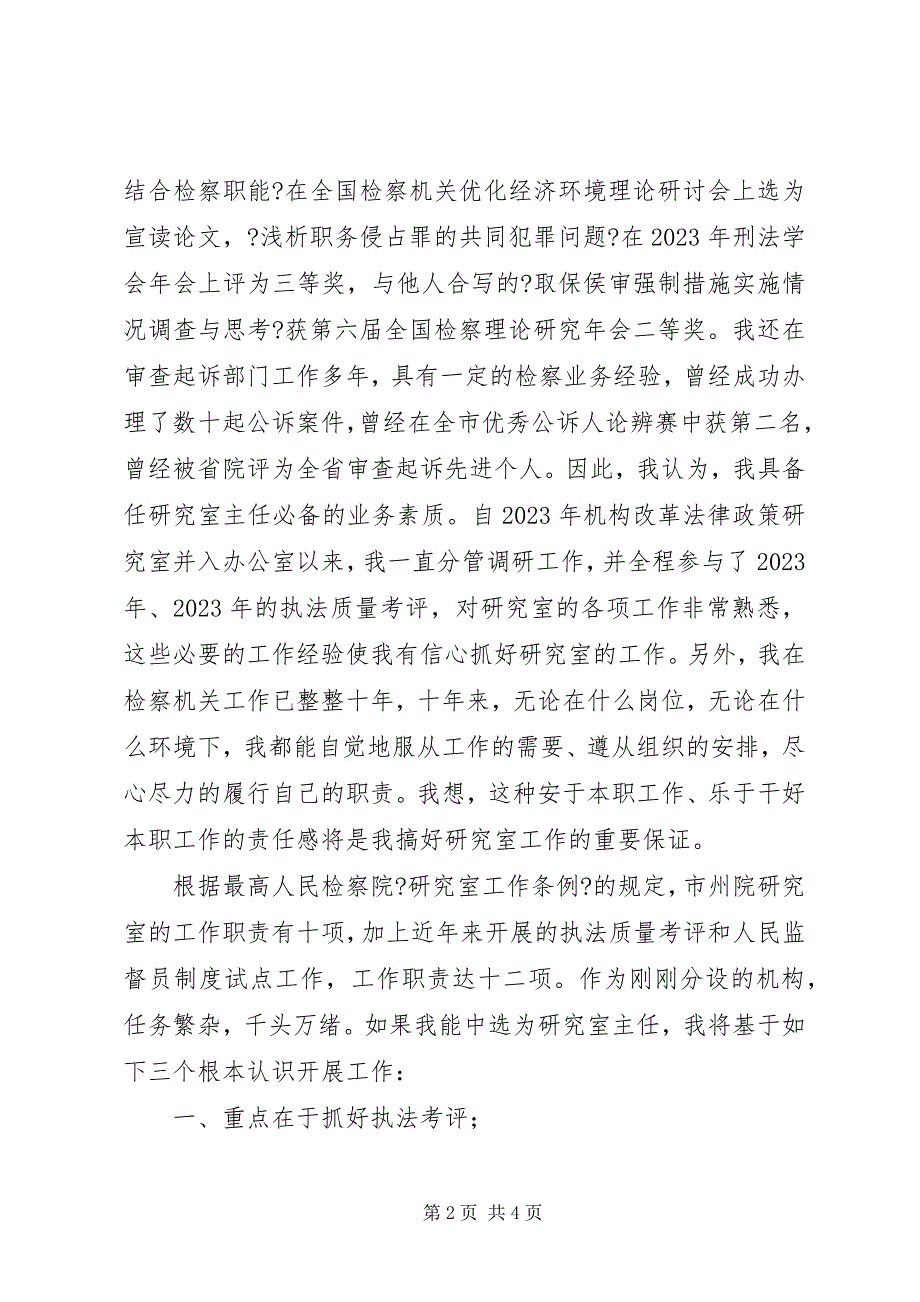 结合检察职能?在全国检察机关优化经济环境理论研讨会上选为
宣读论文，?浅析职务侵占罪的共同犯罪问题?在 2023 年刑法学
会年会上评为三等奖，与他人合写的?取保侯审强制措施实施情
况调查与思考?获第六届全国检察理论研究年会二等奖。我还在
审查起诉部门工作多年，具有一定的检察业务经验，曾经成功办
理了数十起公诉案件，曾经在全市优秀公诉人论辨赛中获第二名，
曾经被省院评为全省审查起诉先进个人。因此，我认为，我具备
任研究室主任必备的业务素质。自 2023 年机构改革法律政策研
究室并入办公室以来，我一直分管调研工作，并全程参与了 2023
年、2023 年的执法质量考评，对研究室的各项工作非常熟悉，
这些必要的工作经验使我有信心抓好研究室的工作。另外，我在
检察机关工作已整整十年，十年来，无论在什么岗位，无论在什
么环境下，我都能自觉地服从工作的需要、遵从组织的安排，尽
心尽力的履行自己的职责。我想，这种安于本职工作、乐于干好
本职工作的责任感将是我搞好研究室工作的重要保证。
根据最高人民检察院?研究室工作条例?的规定，市州院研究
室的工作职责有十项，加上近年来开展的执法质量考评和人民监
督员制度试点工作，工作职责达十二项。作为刚刚分设的机构，
任务繁杂，千头万绪。如果我能中选为研究室主任，我将基于如
下三个根本认识开展工作：
一、重点在于抓好执法考评；
第 2 页 共 4 页